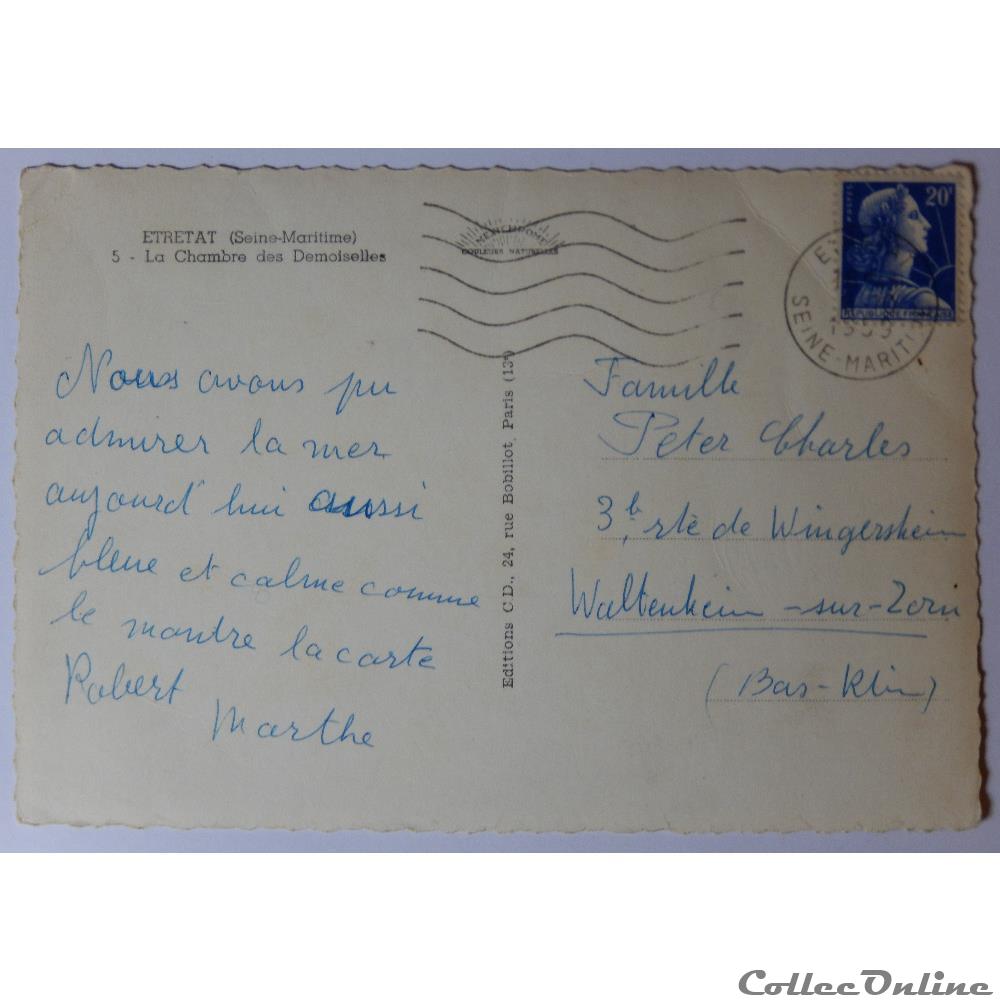 ETRETAT (Seine-Maritime)
5 - La Chambre des Demoiselles
MERCHROME
COULEURS NATURELLES
POSTES
20F
REPUBLIQUE FRANÇAISE
1959
SEINE-MARITI
Nous avons pu
admirer la mer
aujourd'hui aussi
bleue et calme comme
le montre la carte
Robert
Marthe
Editions C.D., 24, rue Bobillot, Paris (13e)
Famille
Peter Charles
3b, rte de Wingersheim
Waltenheim-sur-Zorn
(Bas-Rhin)
CollecOnline